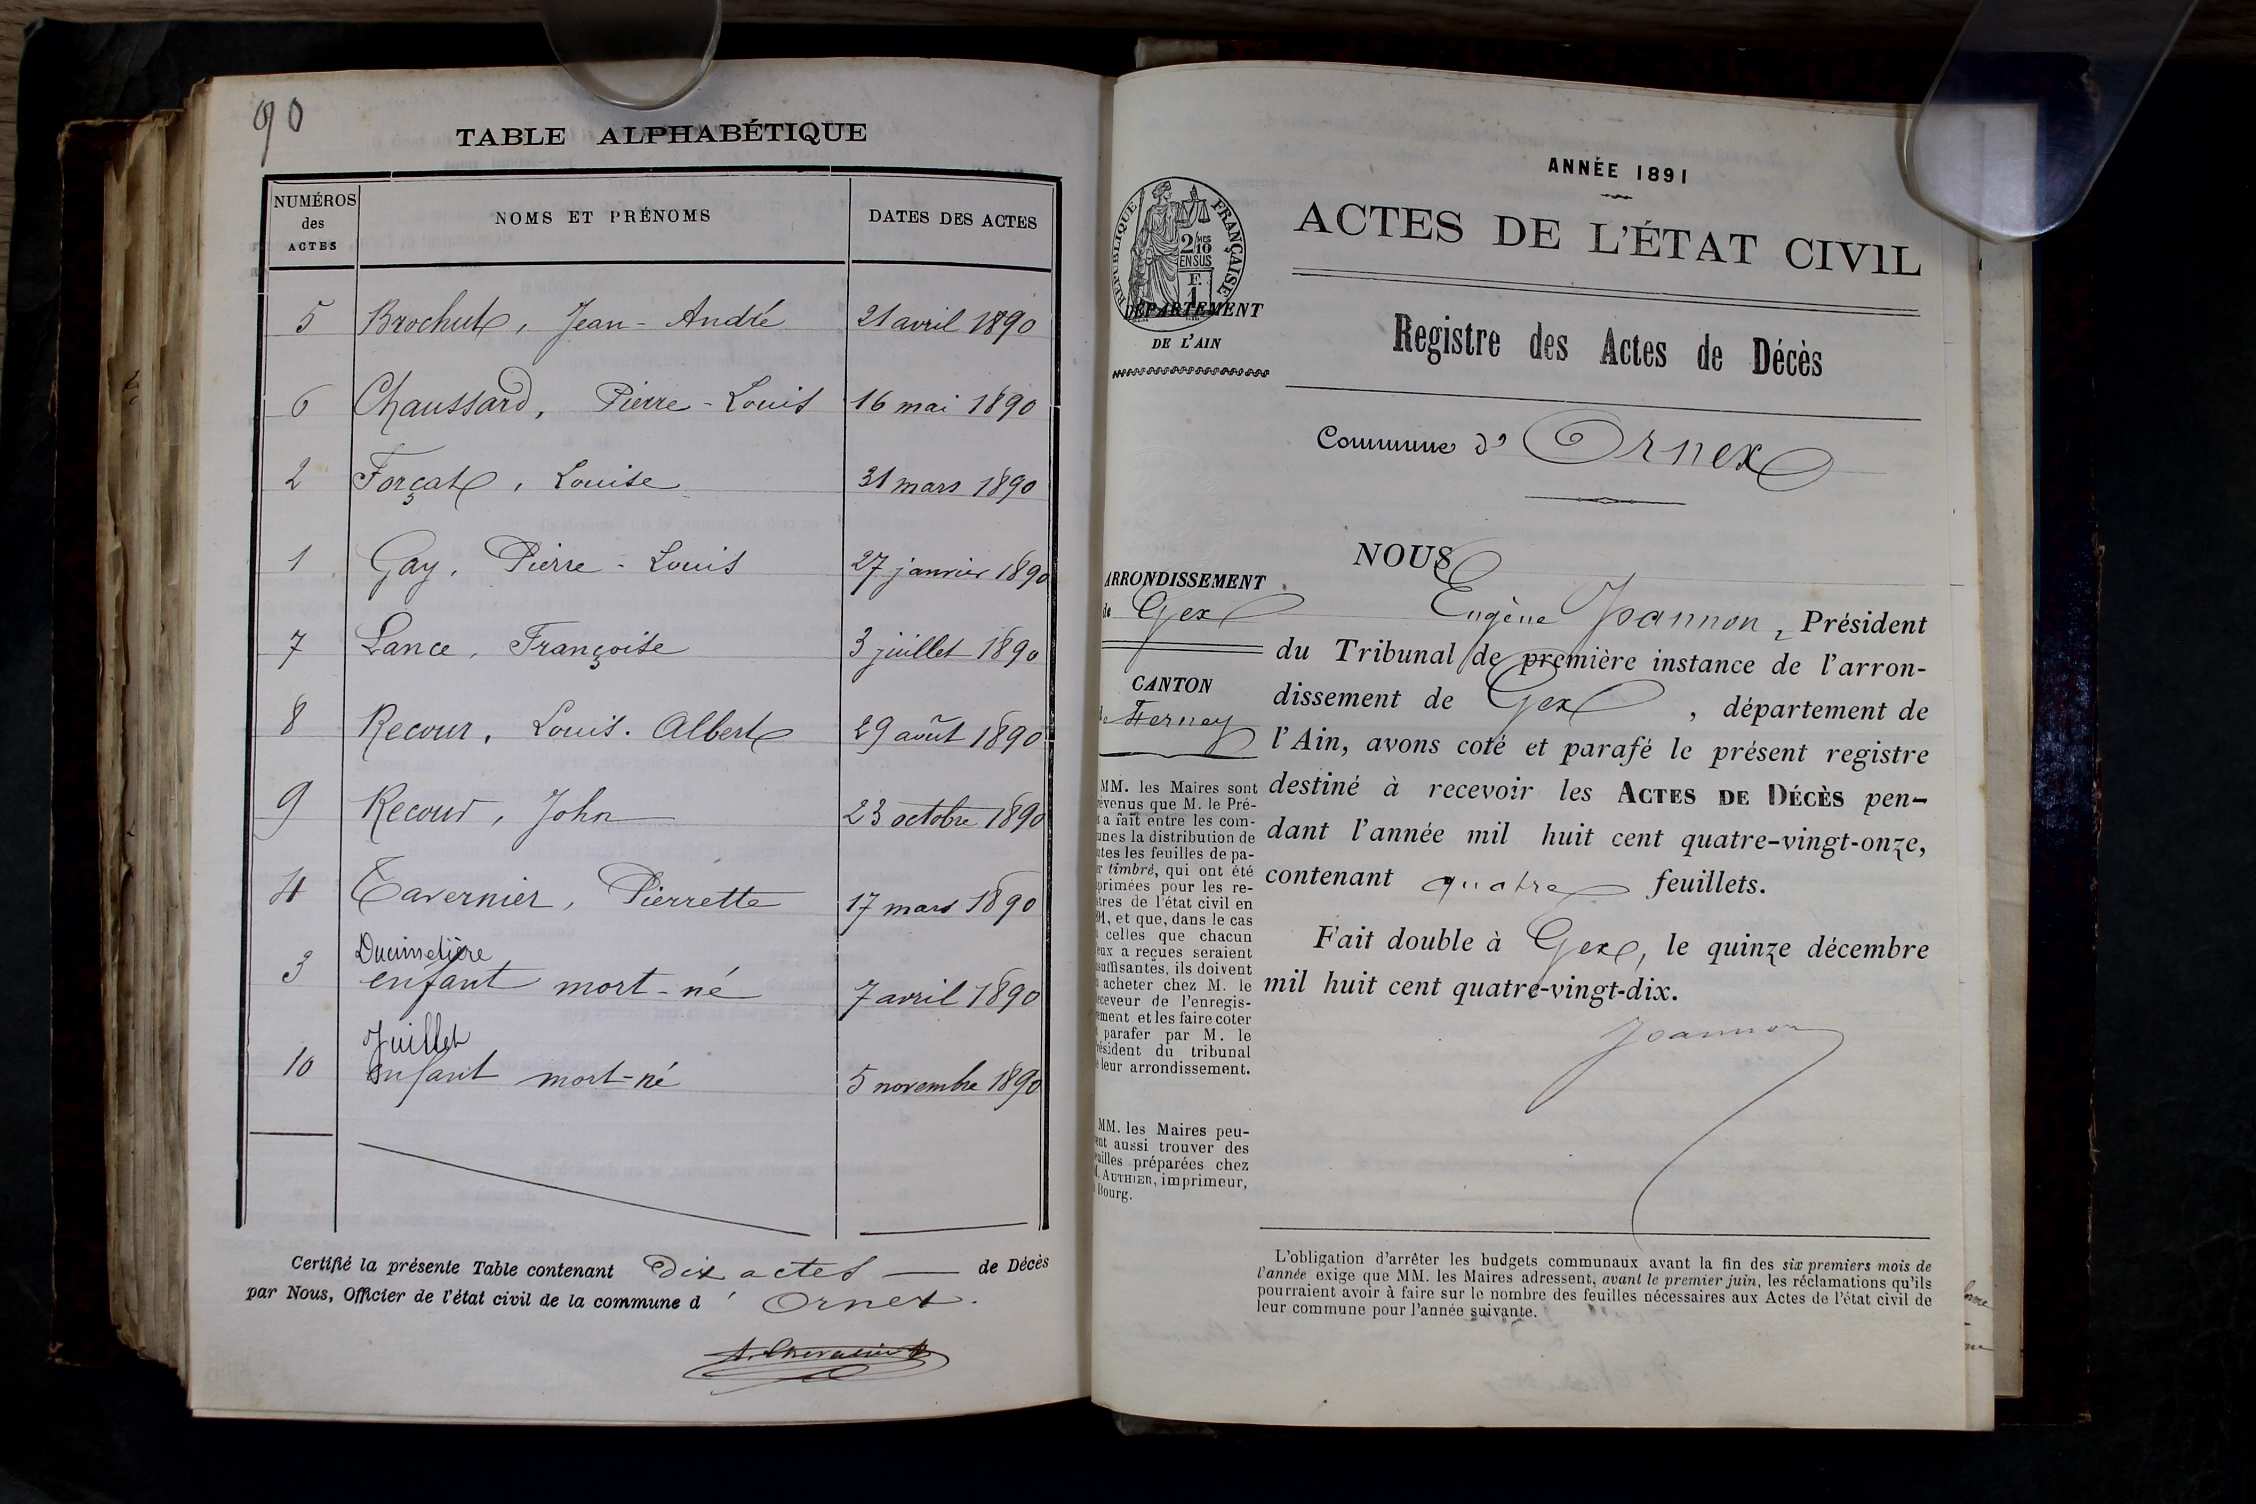 90
TABLE ALPHABÉTIQUE
NUMÉROS des ACTES NOMS ET PRÉNOMS DATES DES ACTES
5 Brochut, Jean-André 21 avril 1890
6 Chaussard, Pierre-Louis 16 mai 1890
2 Forçat, Louise 31 mars 1890
1 Gay, Pierre-Louis 27 janvier 1890
7 Lance, Françoise 3 juillet 1890
8 Recour, Louis-Albert 29 août 1890
9 Recour, John 23 octobre 1890
4 Tavernier, Pierrette 17 mars 1890
Ducimetière
3 enfant mort-né 7 avril 1890
Juillet
10 enfant mort-né 5 novembre 1890
Certifié la présente Table contenant Dix actes de Décès
par Nous, Officier de l'état civil de la commune d' Ornex.
RÉPUBLIQUE FRANÇAISE
2/10 MES
EN SUS
F.
1
DÉPARTEMENT
DE L'AIN
ARRONDISSEMENT
de Gex
CANTON
de Ferney
MM. les Maires sont
évenus que M. le Pré-
t a fait entre les com-
unes la distribution de
utes les feuilles de pa-
r timbré, qui ont été
primées pour les re-
stres de l'état civil en
91, et que, dans le cas
celles que chacun
eux a reçues seraient
suffisantes, ils doivent
acheter chez M. le
eceveur de l'enregis-
ement et les faire coter
parafer par M. le
résident du tribunal
e leur arrondissement.
MM. les Maires peu-
ent aussi trouver des
uilles préparées chez
M. AUTHIER, imprimeur,
Bourg.
ANNÉE 1891
ACTES DE L'ÉTAT CIVIL
Registre des Actes de Décès
Commune d' Ornex
NOUS
Eugène Joannon, Président
du Tribunal de première instance de l'arron-
dissement de Gex, département de
l'Ain, avons coté et parafé le présent registre
destiné à recevoir les ACTES DE DÉCÈS pen-
dant l'année mil huit cent quatre-vingt-onze,
contenant quatre feuillets.
Fait double à Gex, le quinze décembre
mil huit cent quatre-vingt-dix.
Joannon
L'obligation d'arrêter les budgets communaux avant la fin des six premiers mois de
l'année exige que MM. les Maires adressent, avant le premier juin, les réclamations qu'ils
pourraient avoir à faire sur le nombre des feuilles nécessaires aux Actes de l'état civil de
leur commune pour l'année suivante.